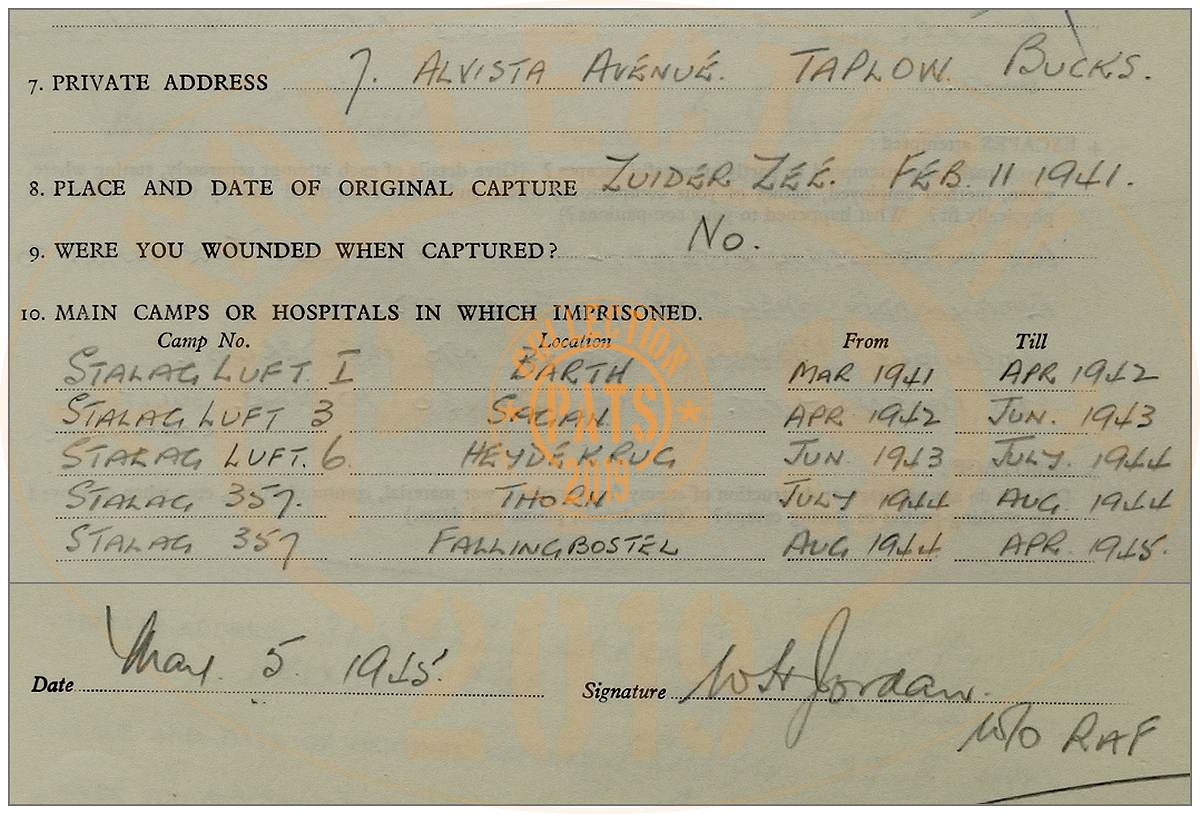 7. PRIVATE ADDRESS 7. ALVISTA AVENUE. TAPLOW. BUCKS.
8. PLACE AND DATE OF ORIGINAL CAPTURE ZUIDER ZEE. FEB. 11 1941.
9. WERE YOU WOUNDED WHEN CAPTURED? NO.
10. MAIN CAMPS OR HOSPITALS IN WHICH IMPRISONED.
Camp No. Location From Till
STALAG LUFT. I BARTH MAR 1941 APR 1942
STALAG LUFT 3 SAGAN. APR 1942 JUN. 1943
STALAG LUFT. 6. HEYDEKRUG JUN. 1943 JULY. 1944
STALAG 357. THORN JULY 1944 AUG 1944
STALAG 357 FALLINGBOSTEL AUG 1944 APR. 1945.
COLLECTION
PATS
2019
Date May. 5 1945. Signature WH Jordan.
W/O RAF